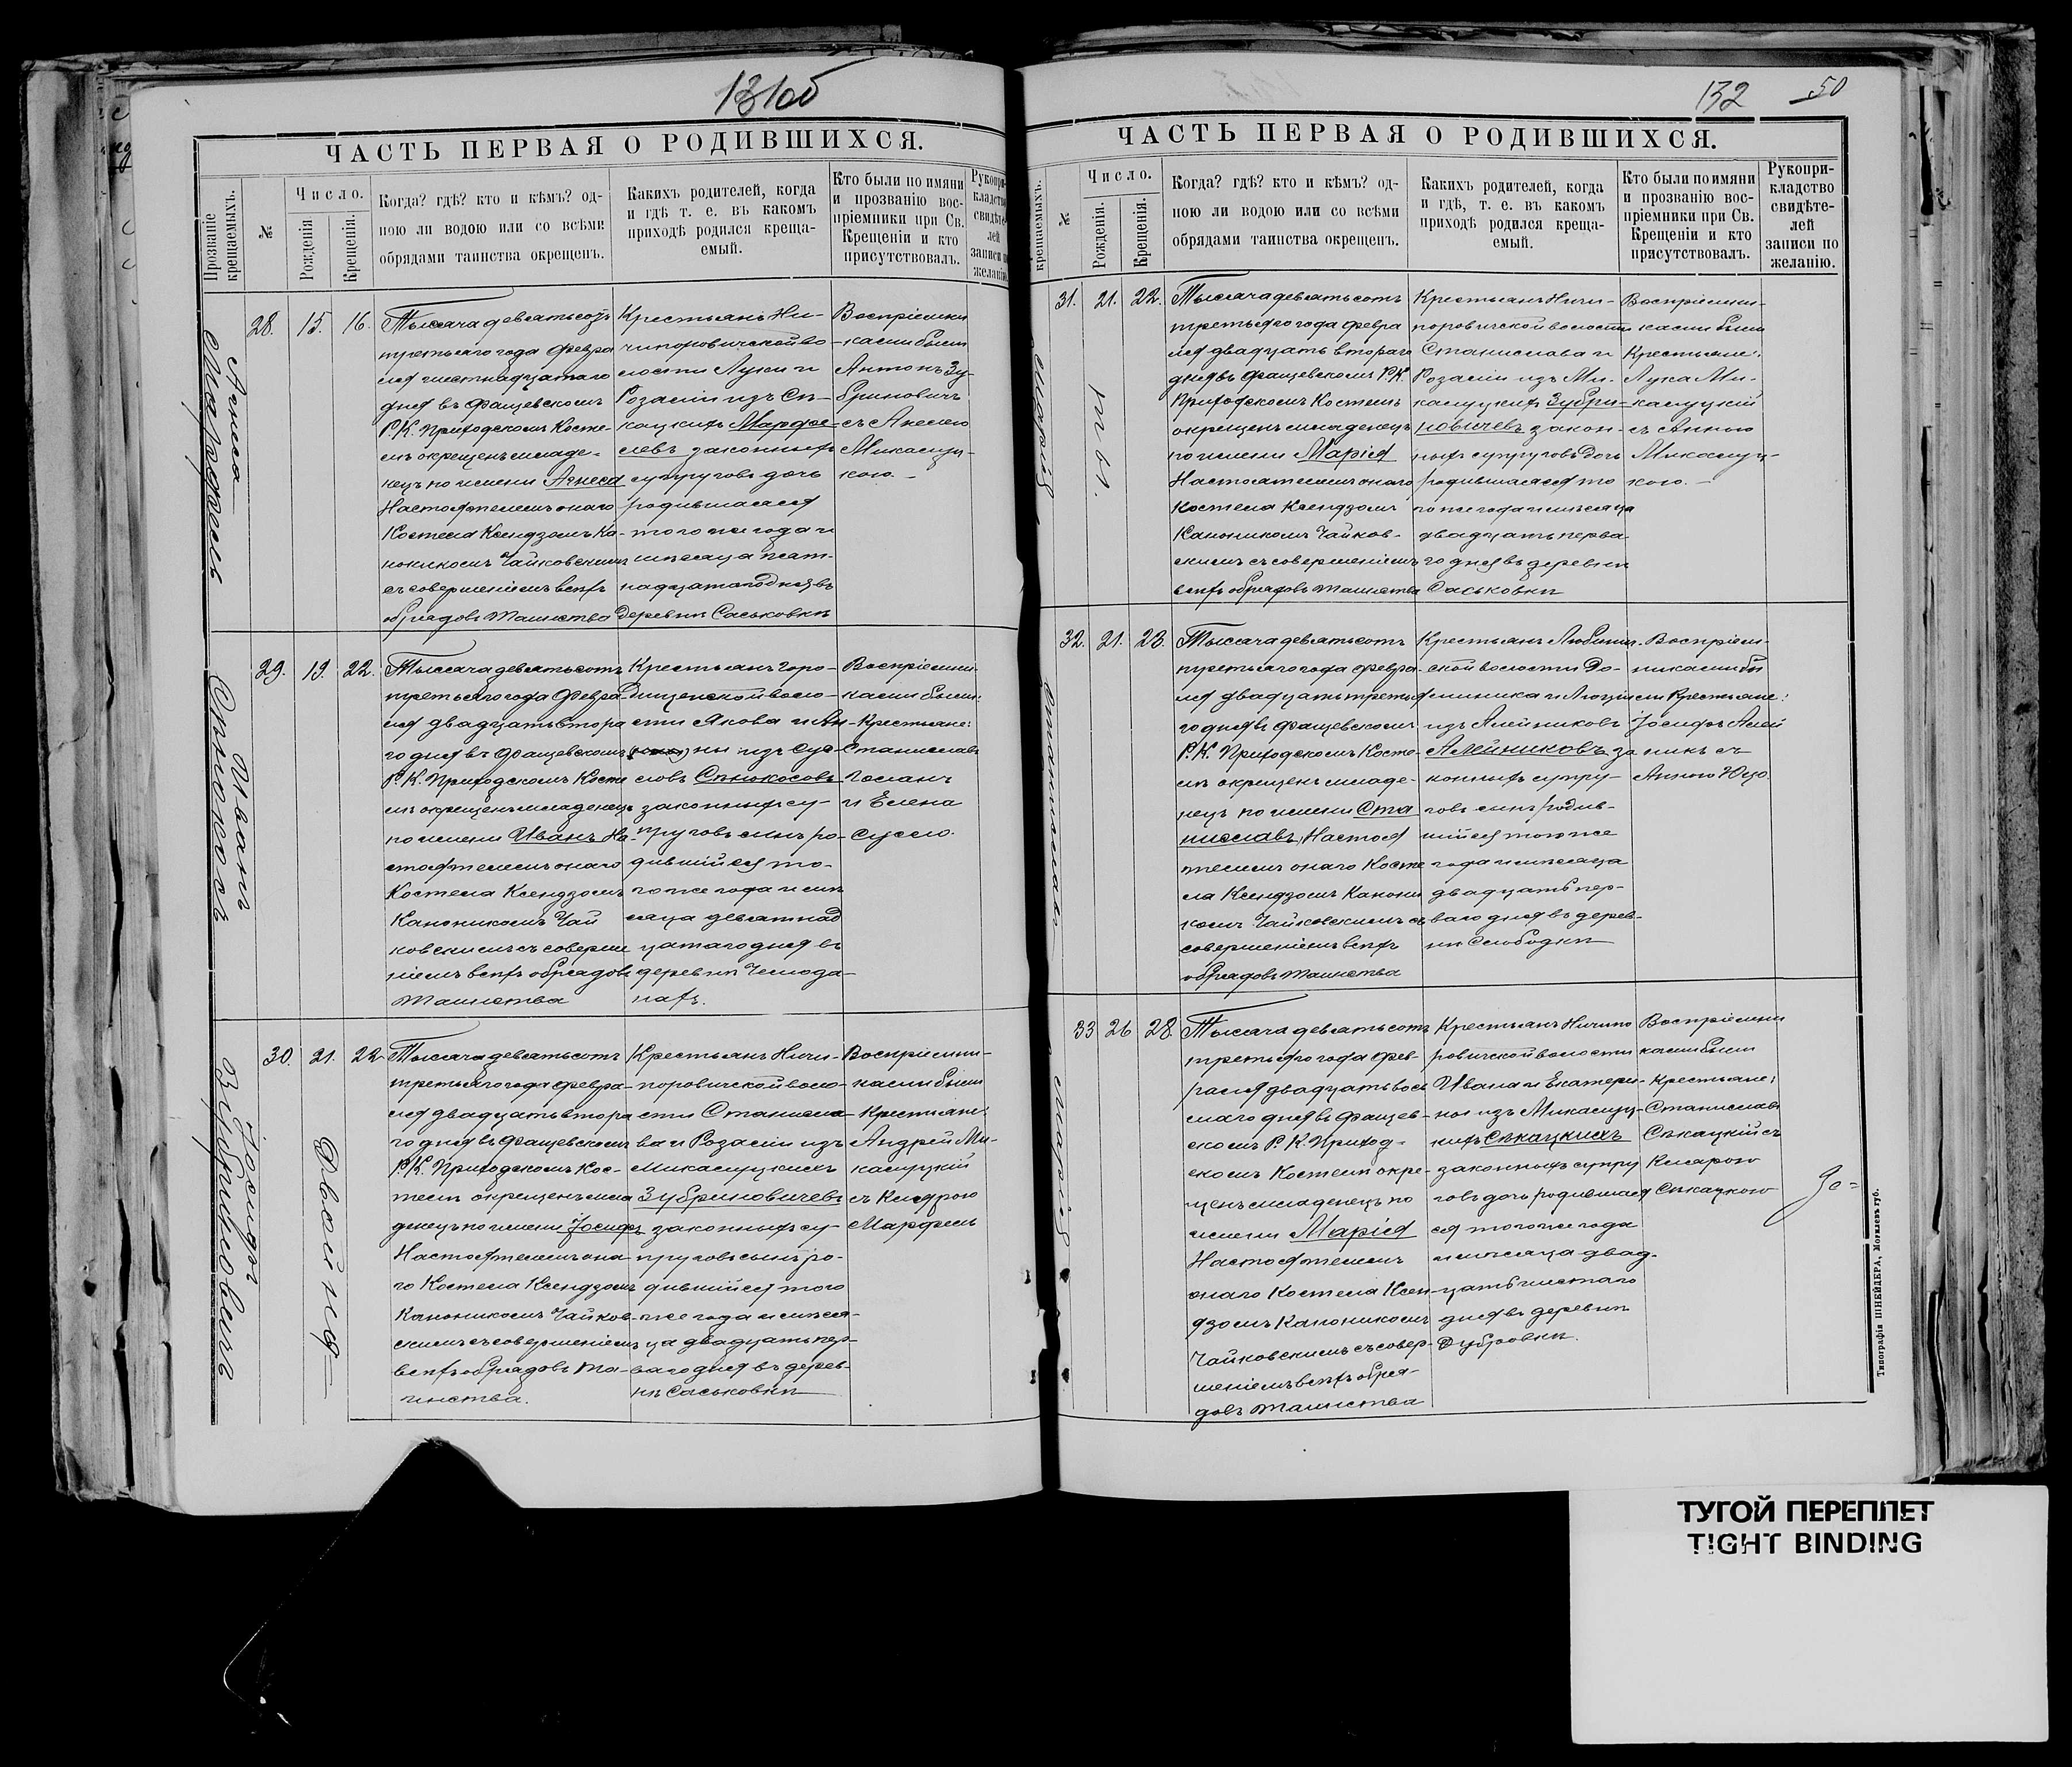 131об
ЧАСТЬ ПЕРВАЯ О РОДИВШИХСЯ.
Прозваніе крещаемыхъ.
№
Число.
Рожденія
Крещенія.
Когда? гдѣ? кто и кѣмъ? од-
ною ли водою или со всѣми
обрядами таинства окрещенъ.
Какихъ родителей, когда
и гдѣ т. е. въ какомъ
приходѣ родился креща-
емый.
Кто были по имяни
и прозванію вос-
пріемники при Св.
Крещеніи и кто
присутствовалъ.
Рукопри-
кладство
свидѣте-
лей
записи по
желанію.
Агнеса
Марфель
28. 15. 16.
Тысяча девятьсотъ
третьяго года Февра
ля шестнадцатаго
дня въ Фащевскомъ
Р. К. Приходскомъ Косте-
лѣ окрещенъ младе-
нецъ по имени Агнеса
Настоятелемъ онаго
Костела Ксендзомъ Ка-
ноникомъ Чайковскимъ
съ совершеніемъ всѣхъ
обрядовъ Таинства
Крестьянъ Ни-
чипоровичской во-
лости Луки и
Розаліи изъ Сѣ-
кацкихъ Марфе-
левъ законныхъ
супруговъ дочь
родившаяся
того же года и
мѣсяца пят-
надцатаго дня въ
деревнѣ Саськовкѣ
Воспріемни
ками были
Антонъ Зу-
бриновичъ
съ Анелею
Микалуц-
кою.
Иванъ
Сѣнокосъ
29. 19. 22.
Тысяча девятьсотъ
третьяго года Февра
ля двадцать втора
го дня въ Фащевскомъ
Р. К. Приходскомъ Косте
лѣ окрещенъ младенецъ
по имени Иванъ На-
стоятелемъ онаго
Костела Ксендзомъ
Каноникомъ Чай
ковскимъ съ соверше
ніемъ всѣхъ обрядовъ
Таинства
Крестьянъ Горо-
дищенской воло-
сти Якова и Ан-
ны изъ Сус-
ловъ Сѣнокосовъ
законныхъ су-
пруговъ сынъ ро-
дившійся то-
го же года и мѣ
сяца девятнад
цатаго дня въ
деревнѣ Чемода-
нахъ.
Воспріемни-
ками были:
Крестьяне:
Станиславъ
и Елена
Сусло.
Іосифъ
Зубриновичъ
30. 21. 22
Двойня
Тысяча девятьсотъ
третьяго года Февра-
ля двадцать втора
го дня въ Фащевскомъ
Р. К. Приходскомъ Кос-
телѣ окрещенъ мла
денецъ по имени Іосифъ
Настоятелемъ она-
го Костела Ксендзомъ
Каноникомъ Чайков-
скимъ съ совершеніемъ
всѣхъ обрядовъ Та-
инства.
Крестьянъ Ничи-
поровичской воло-
сти Станисла-
ва и Розаліи изъ
Микалуцкихъ
Зубриновичевъ
законныхъ су-
пруговъ сынъ ро-
дившійся того
же года и мѣся-
ца двадцать пер-
ваго дня въ дерев-
нѣ Саськовкѣ
Воспріемни-
ками были
Крестьяне:
Андрей Ми-
калуцкій
съ Кларою
Марфель
132 50
ЧАСТЬ ПЕРВАЯ О РОДИВШИХСЯ.
крещаемыхъ.
№
Число.
Рожденія.
Крещенія.
Когда? гдѣ? кто и кѣмъ? од-
ною ли водою или со всѣми
обрядами таинства окрещенъ.
Какихъ родителей, когда
и гдѣ, т. е. въ какомъ
приходѣ родился креща-
емый.
Кто были по имяни
и прозванію вос-
пріемники при Св.
Крещеніи и кто
присутствовалъ.
Рукопри-
кладство
свидѣте-
лей
записи по
желанію.
Марія
31. 21. 22.
Тысяча девятьсотъ
третьяго года Февра
ля двадцать втораго
дня въ Фащевскомъ Р. К.
Приходскомъ Костелѣ
окрещенъ младенецъ
по имени Марія
Настоятелемъ онаго
Костела Ксендзомъ
Каноникомъ Чайков-
скимъ съ совершеніемъ
всѣхъ обрядовъ Таинства
Крестьянъ Ничи-
поровичской волости
Станислава и
Розаліи изъ Ми-
калуцкихъ Зубри-
новичевъ закон-
ныхъ супруговъ дочь
родившаяся то
го же года и мѣсяца
двадцать перва
го дня въ деревнѣ
Саськовкѣ
Воспріемни-
ками были
Крестьяне:
Лука Ми-
калуцкій
съ Анною
Микалуц-
кою.
Станиславъ
32. 21. 23.
Тысяча девятьсотъ
третьяго года Февра-
ля двадцать третья
го дня въ Фащевскомъ
Р. К. Приходскомъ Косте-
лѣ окрещенъ младе-
нецъ по имени Ста
ниславъ, Настоя
телемъ онаго Косте
ла Ксендзомъ Канони
комъ Чайковскимъ съ
совершеніемъ всѣхъ
обрядовъ Таинства
Крестьянъ
ской волости До-
миника и Люціи
изъ Алейниковъ
Алейниковъ за
конныхъ супру-
говъ сынъ родив-
шійся того же
года и мѣсяца
двадцать пер-
ваго дня въ дерев-
нѣ Слободкѣ
Воспріем-
никами бы
ли Крестьяне:
Іосифъ Алей
никъ съ
Анною
Марія
33 26 28.
Тысяча девятьсотъ
третьяго года Фев-
раля двадцать вось
маго дня въ Фащев-
скомъ Р. К. Приход-
скомъ Костелѣ окре-
щенъ младенецъ по
имени Марія
Настоятелемъ
онаго Костела Ксен-
дзомъ Каноникомъ
Чайковскимъ съ совер-
шеніемъ всѣхъ обря-
довъ Таинства
Крестьянъ Ничипо
ровичской волости
Ивана и Екатери-
ны изъ Микалуц-
кихъ Сѣкацкихъ
законныхъ супру
говъ дочь родивша
яся того же года
и мѣсяца двад-
цать шестаго
дня въ деревнѣ
Дубровкѣ.
Воспріемни
ками были
Крестьяне:
Станиславъ
Сѣкацкій съ
Кларою
Сѣкацкою
Типографія ШНЕЙДЕРА, Могилевъ губ.
ТУГОЙ ПЕРЕПЛЕТ
TIGHT BINDING